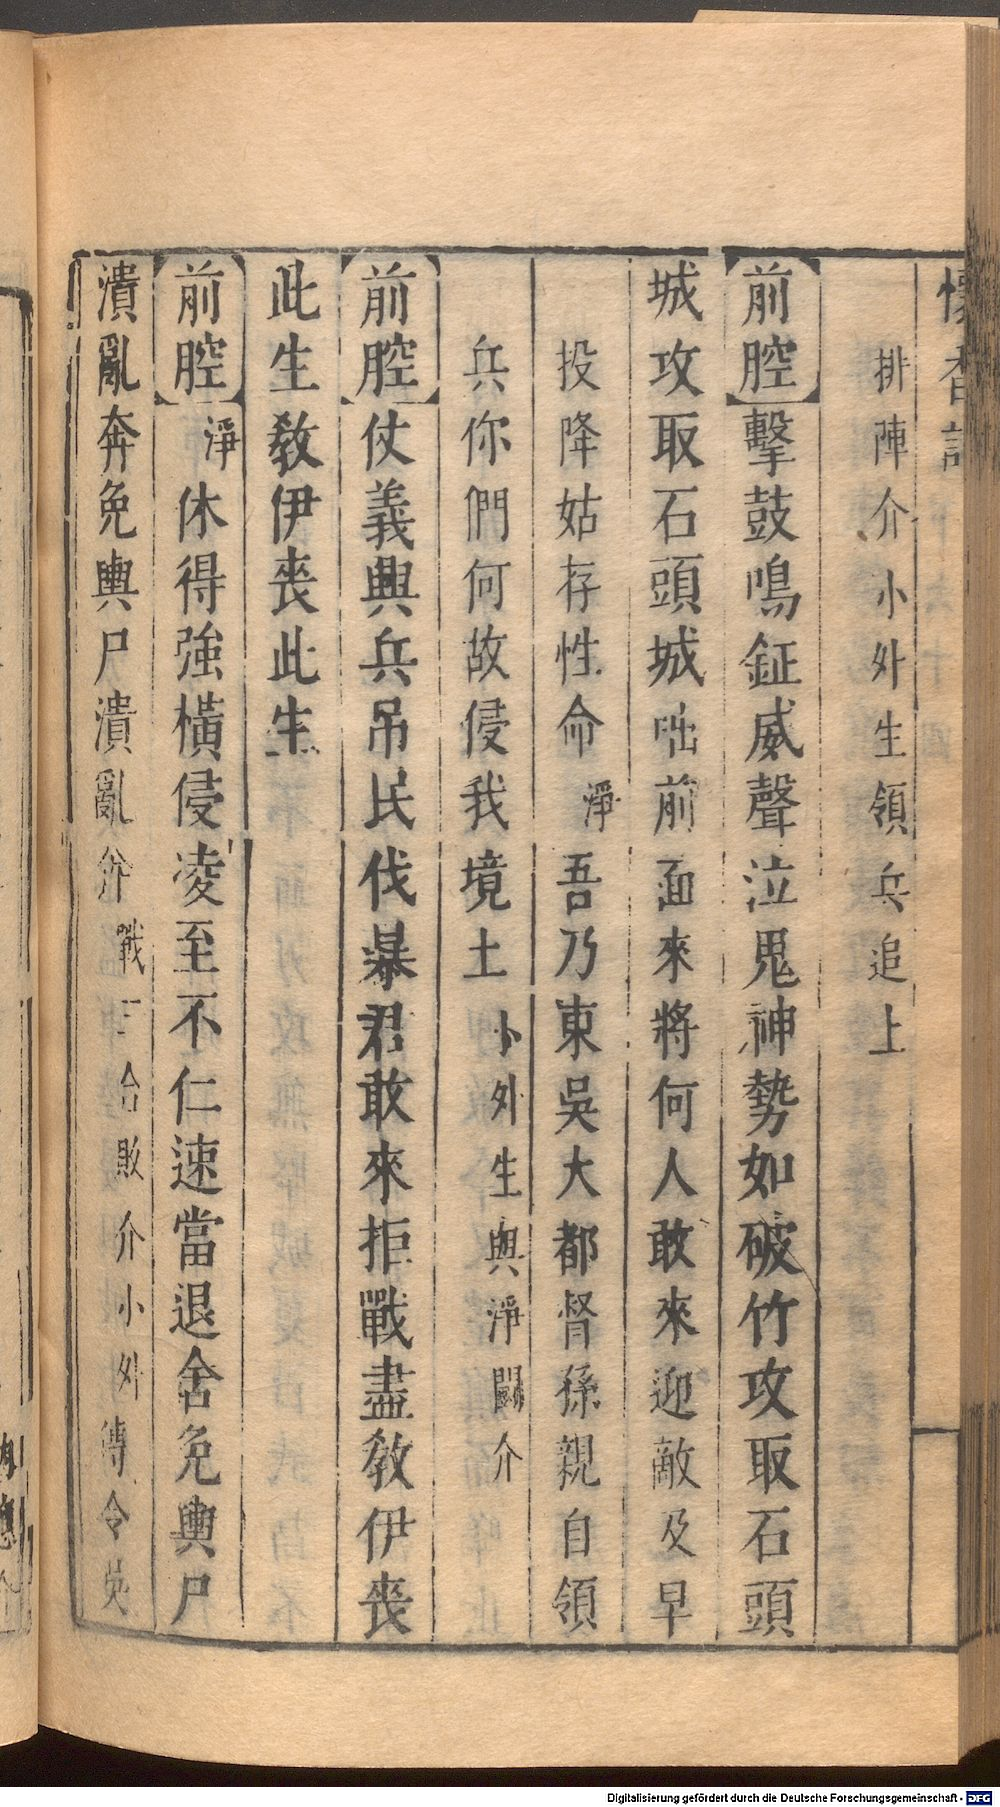 懷香記
排陣介小外生領兵追上
前腔擊鼓鳴鉦威聲泣鬼神勢如破竹攻取石頭
城攻取石頭城咄前面來將何人敢來迎敵及早
投降姑存性命淨吾乃東吳大都督孫親自領
兵你們何故侵我境土小外生與淨鬭介
前腔仗義興兵吊民伐暴君敢來拒戰盡教伊喪
此生教伊喪此生
前腔淨休得強橫侵凌至不仁速當退舍免輿尸
潰亂奔免輿尸潰亂奔戰三合敗介小外傳令吳
Digitalisierung gefördert durch die Deutsche Forschungsgemeinschaft - DFG